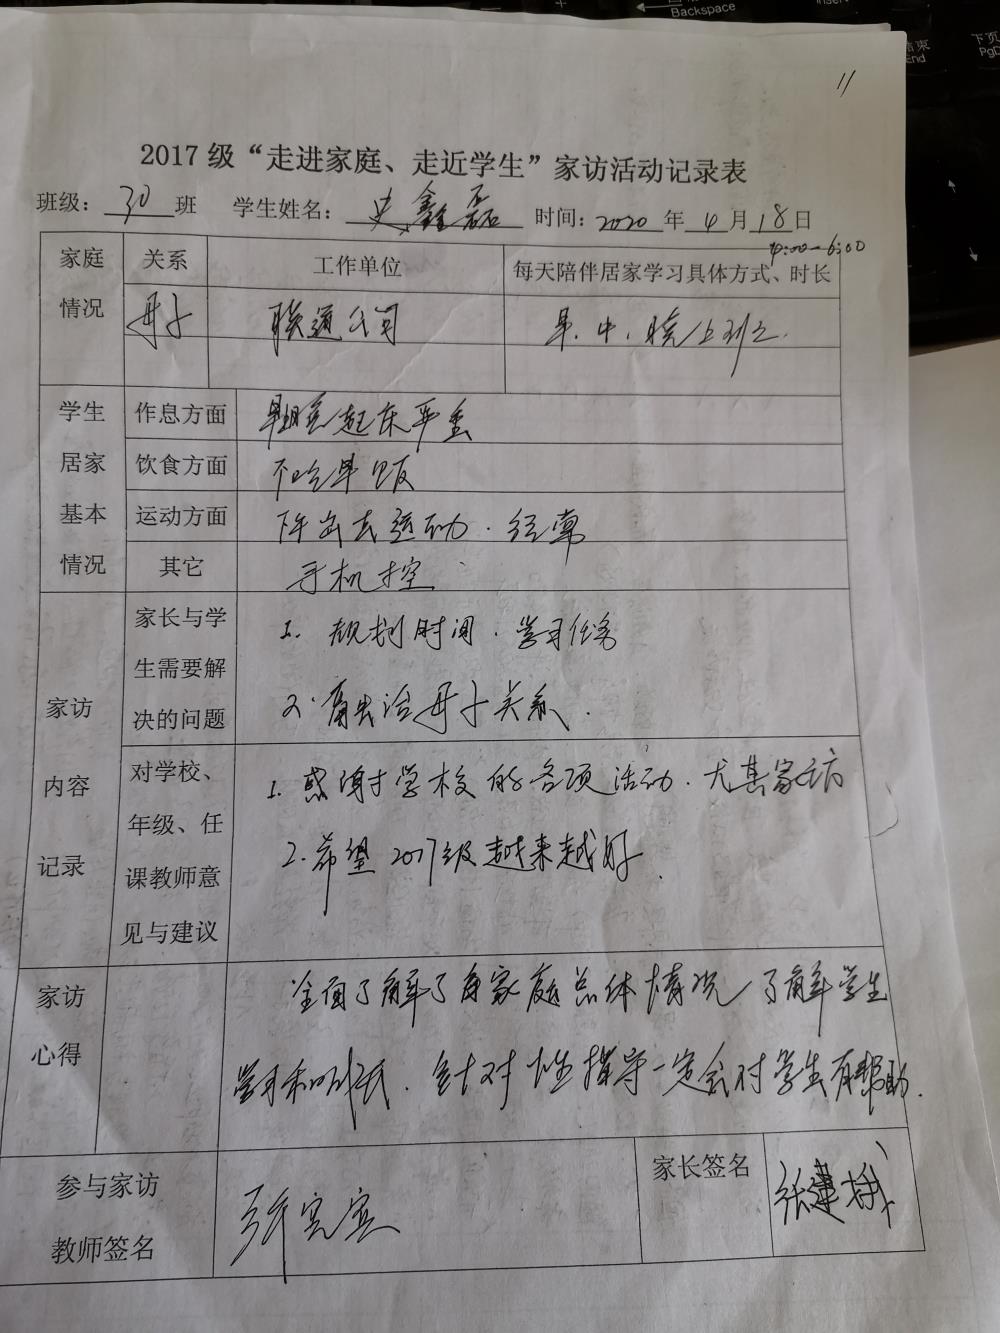 Backspace
Insert
End
下页
PgD
11
2017 级“走进家庭、走近学生”家访活动记录表
班级：30 班 学生姓名：史鑫磊 时间：2020 年 4 月 18 日
4:00-6:00
家庭情况 关系 工作单位 每天陪伴居家学习具体方式、时长
母子 联通公司 早.中.晚上班之.
学生居家基本情况
作息方面 起床严重
饮食方面 不吃早饭
运动方面 下午出去运动.经常
其它 手机控
家访内容记录
家长与学
生需要解
决的问题
1. 规划时间.学习任务
2. 母子关系.
对学校、
年级、任
课教师意
见与建议
1. 感谢学校的各项活动.尤其家访
2. 希望2017级越来越好.
家访心得
全面了解了每家庭总体情况,了解学生
学习和.针对性指导一定会对学生有帮助.
参与家访
教师签名
家长签名 张建娥